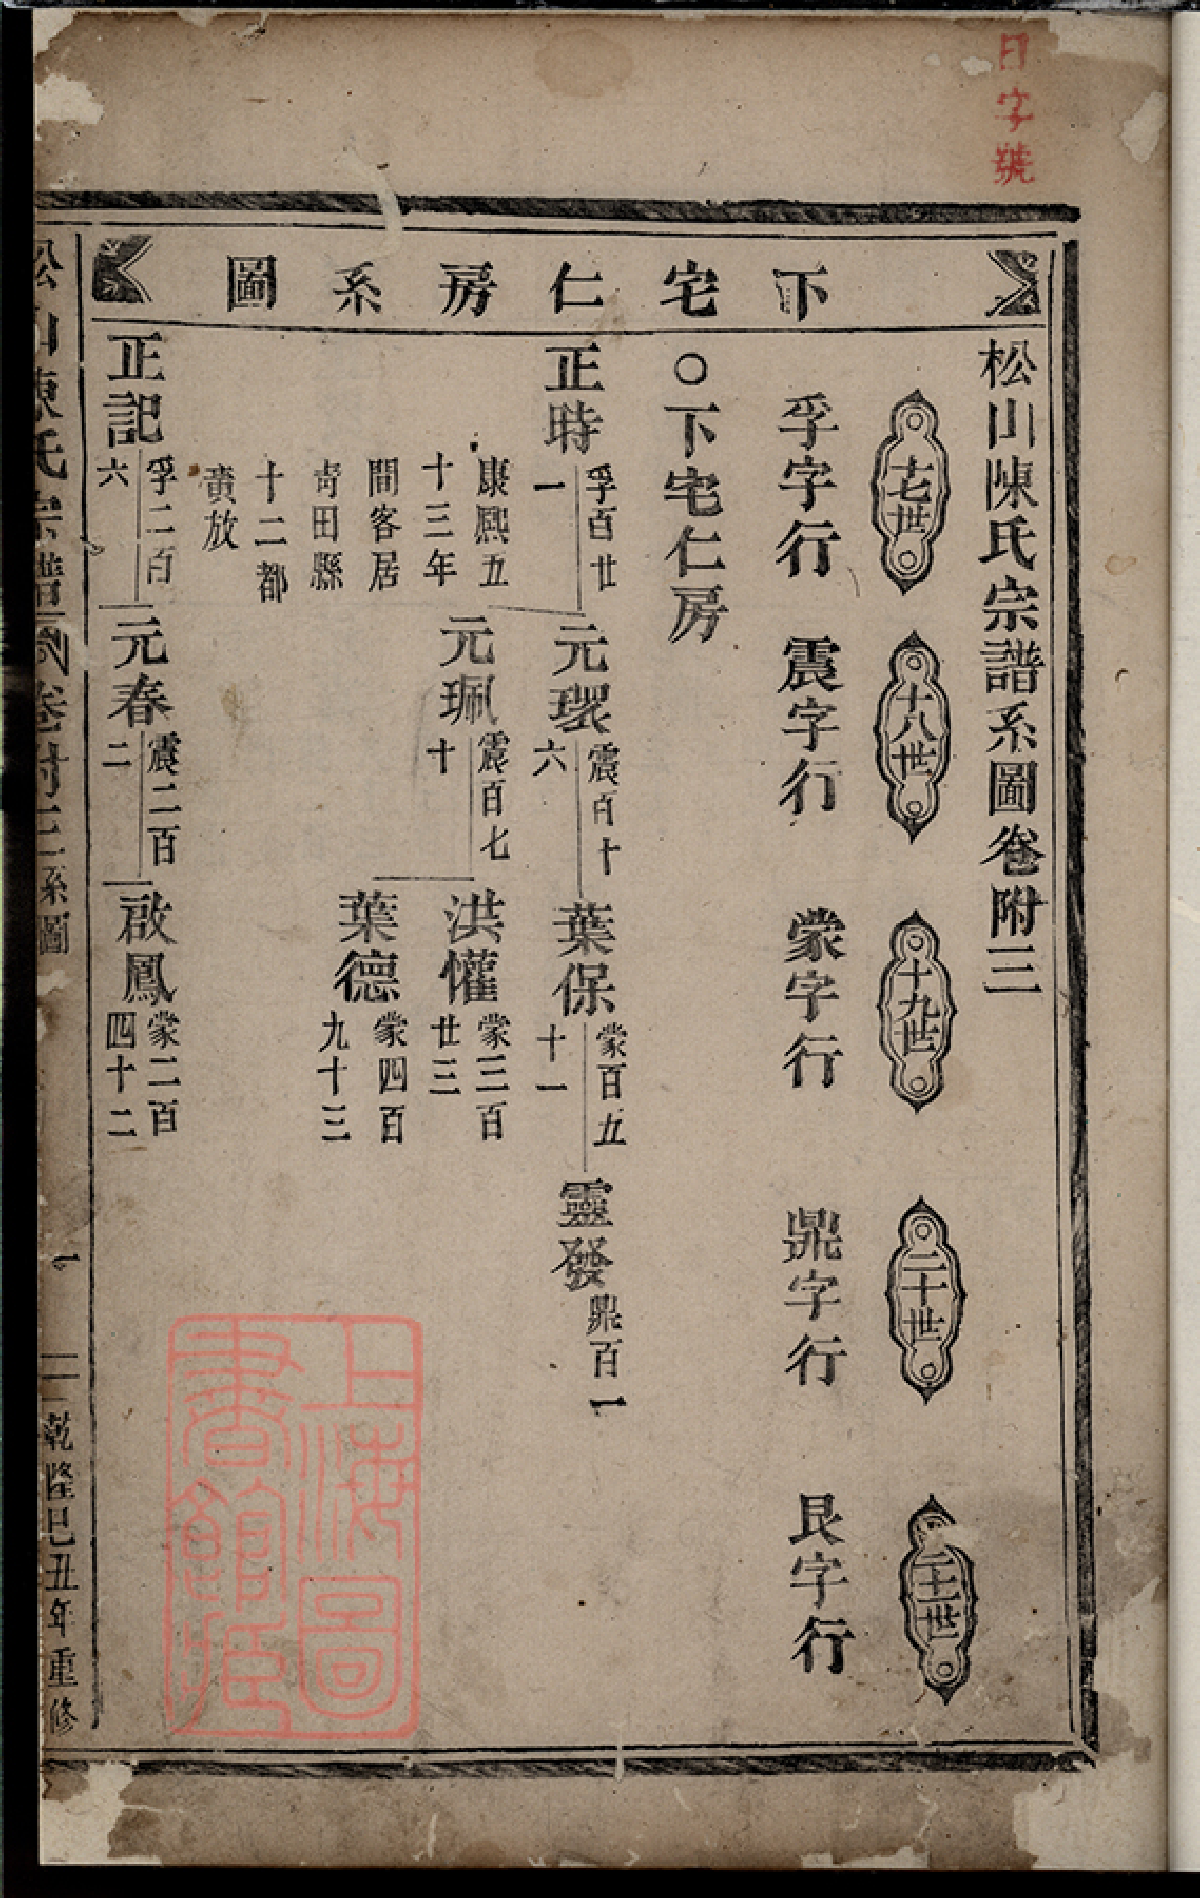 日字號
下宅仁房系圖
松山陳氏宗譜系圖卷附三
十七世
十八世
十九世
二十世
二十一世
孚字行
震字行
蒙字行
鼎字行
艮字行
○下宅仁房
正時
孚百廿
一
元環
震百十
六
葉保
蒙百五
十一
靈發
鼎百一
康熙五
十三年
間客居
青田縣
十二都
黄放
元珮
震百七
十
洪懽
蒙三百
廿三
葉德
蒙四百
九十三
正記
孚二百
六
元春
震二百
二
啟鳳
蒙二百
四十二
松山陳氏宗譜 卷附三系圖
一
乾隆己丑年重修
上海圖
書館藏